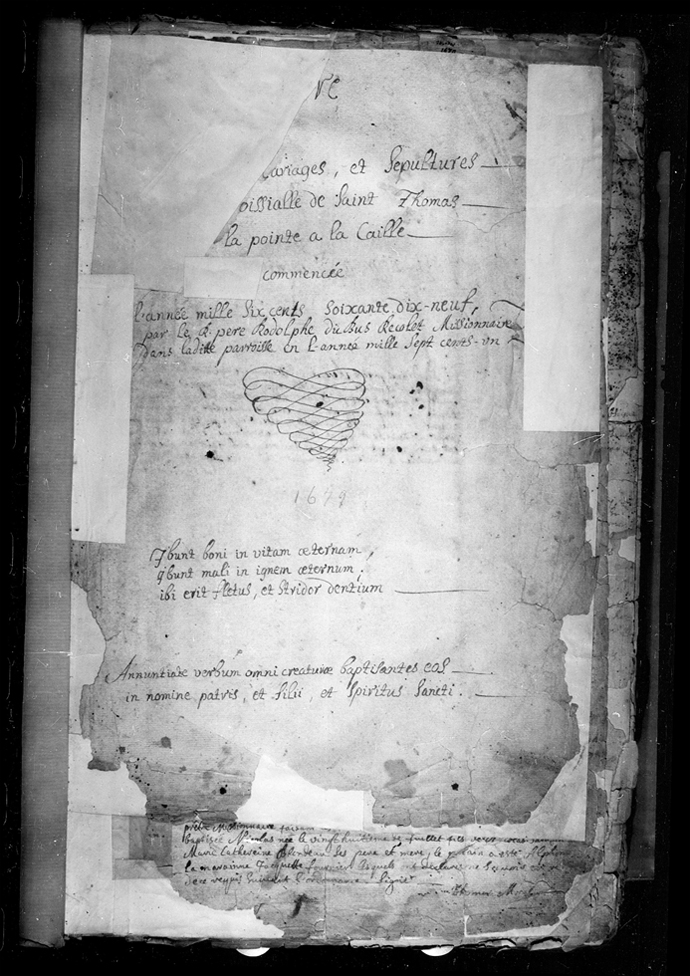 ariages, et Sepultures
oissialle de Saint Thomas
la pointe a la Caille
commencée
l'année mille Six cents Soixante dix-neuf,
par le R. pere Rodolphe du Bus Recolet Missionnaire
dans ladite parroisse en l'année mille Sept cents-un
1679
Ibunt boni in vitam æternam,
ibunt mali in ignem æternum.
ibi erit fletus, et Stridor dentium
Annuntiate verbum omni creaturæ baptisantes eos
in nomine patris, et filii, et Spiritus Sancti.
prêtre Missionnaire
baptisée Nicolas née le vingt huitieme de Juillet fils
Marie Catherine ses pere et mere, le parain a esté
la marainne Jacquette
Thomas Morel